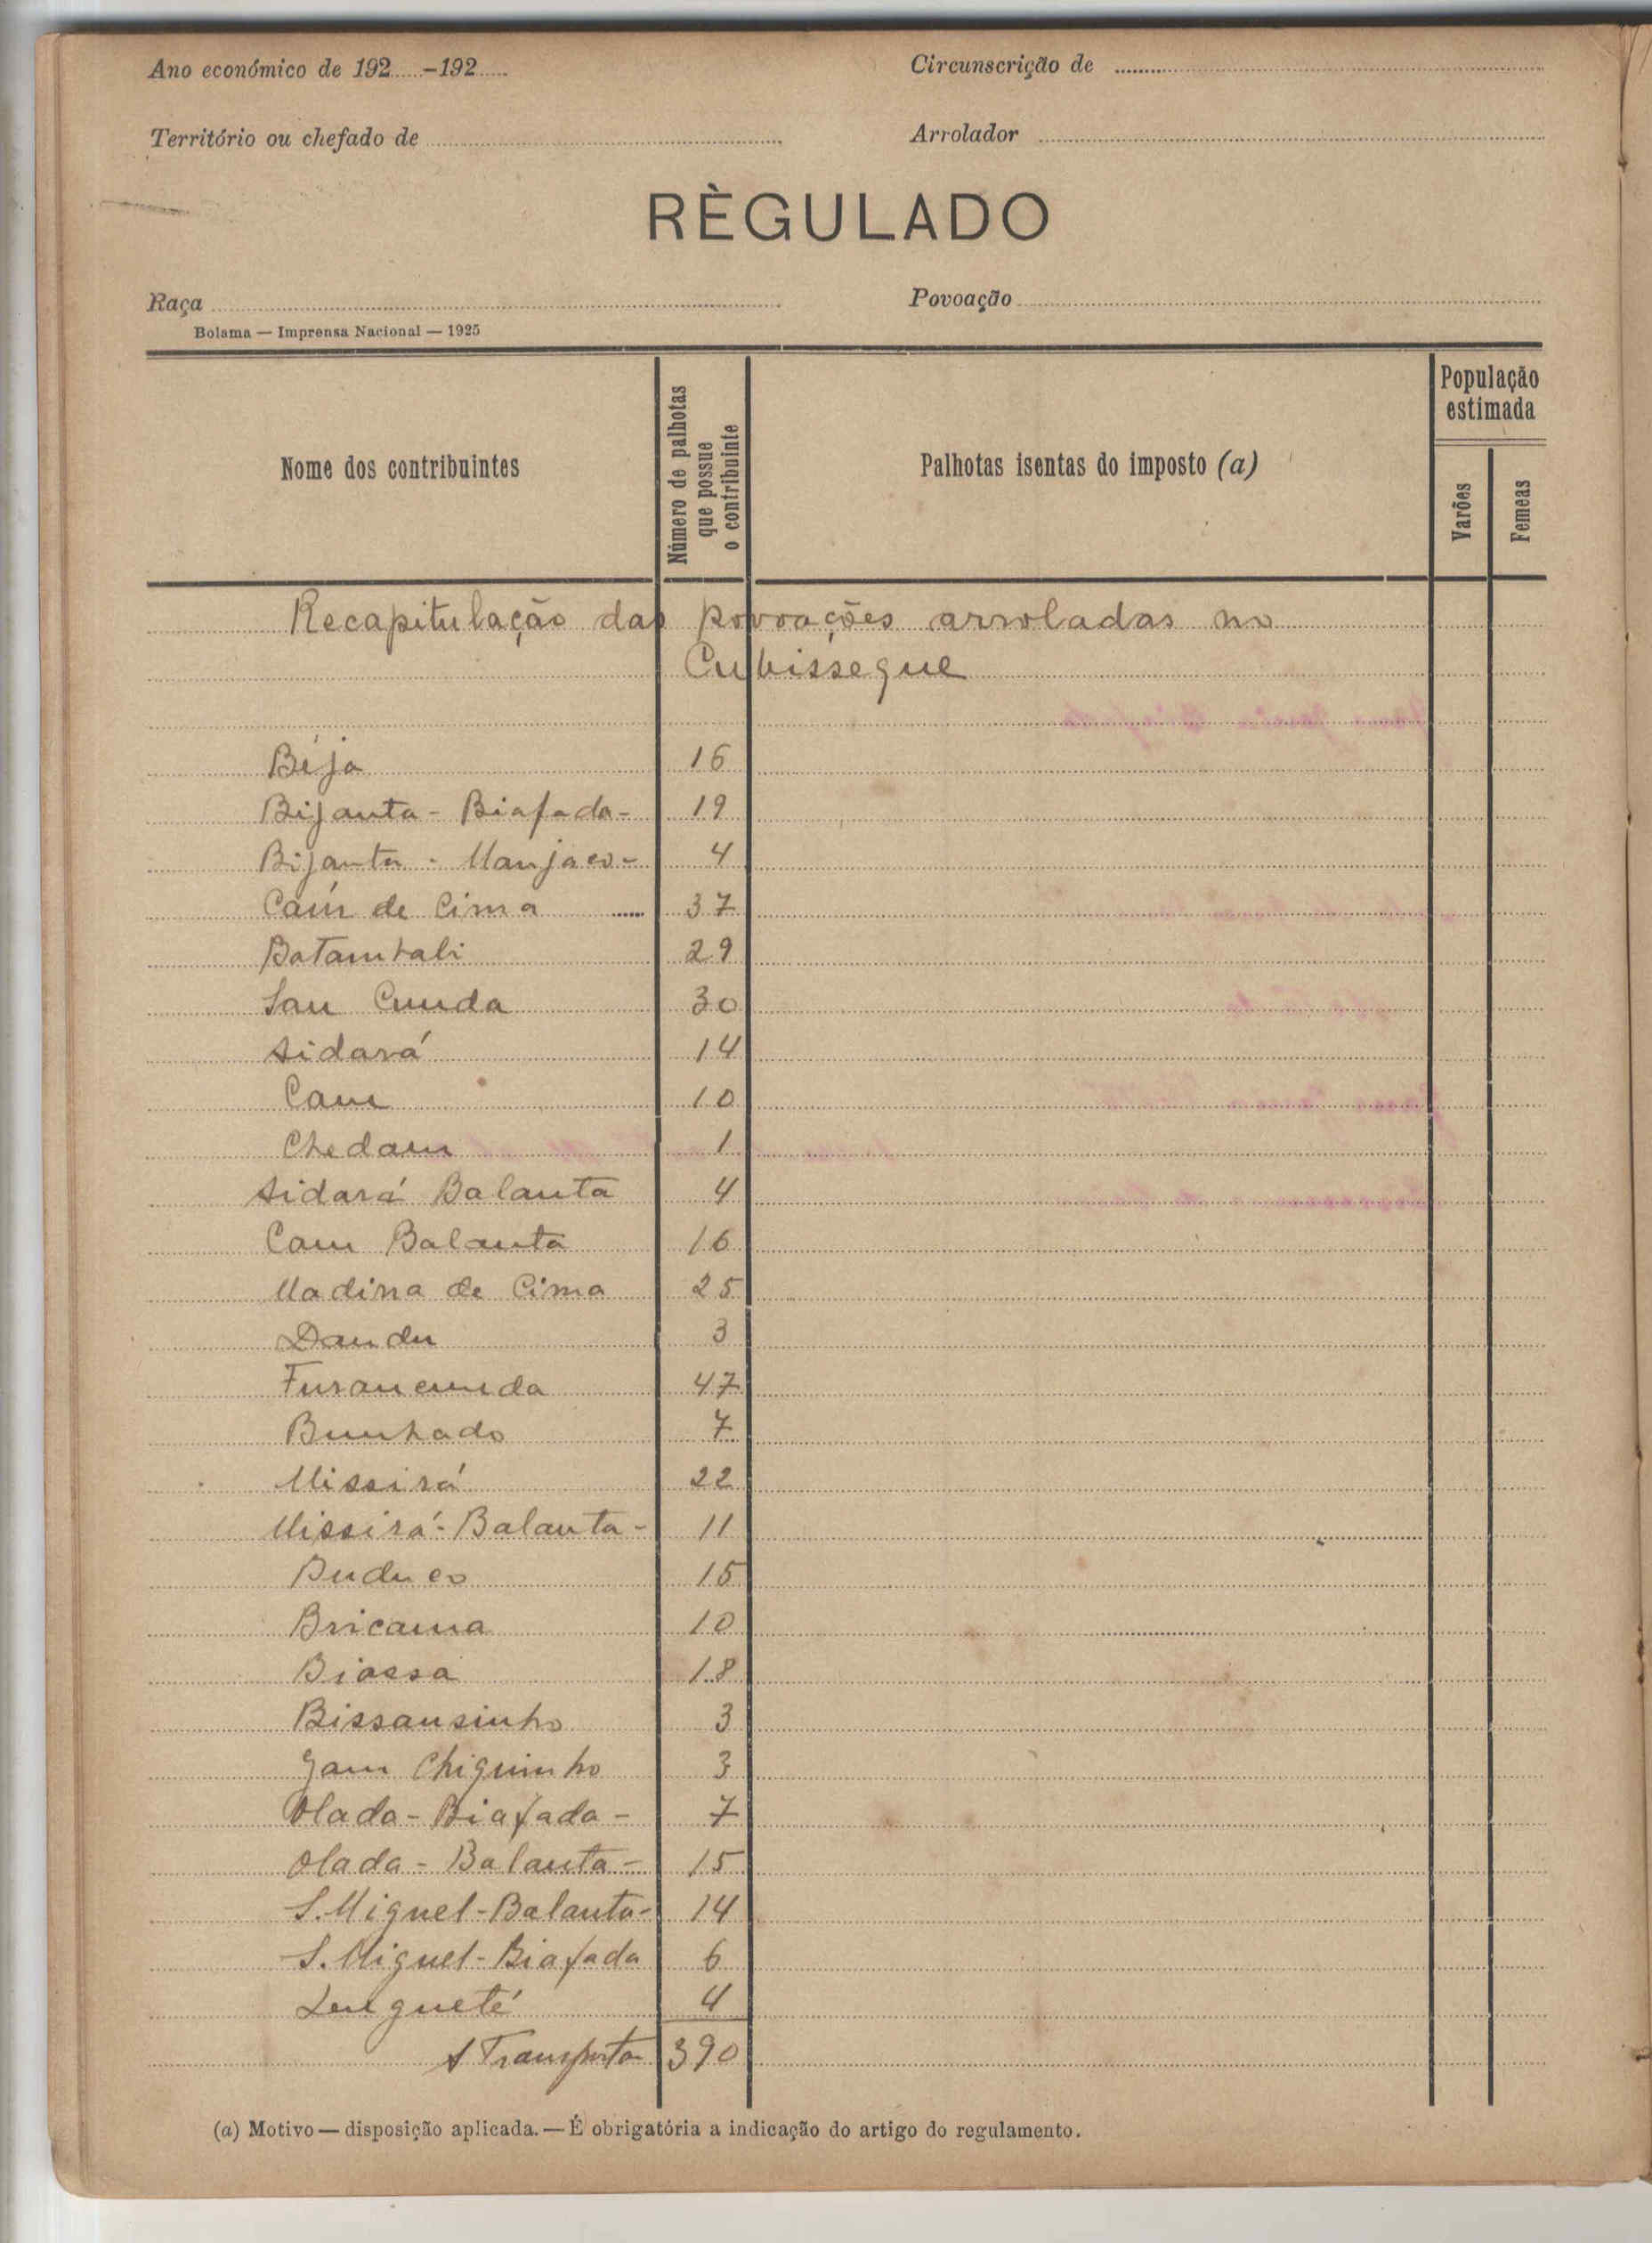 Ano económico de 192......-192......
Circunscrição de
Território ou chefado de
Arrolador
RÈGULADO
Raça
Povoação
Bolama — Imprensa Nacional — 1925
Nome dos contribuintes
Número de palhotas que possue o contribuinte
Palhotas isentas do imposto (a)
População estimada
Varões
Femeas
Recapitulação das povoações arroladas no
Cubisseque
Béja 16
Bijanta - Biafada - 19
Bijanta - Manjaco - 4
Caúr de Cima 37
Batambali 29
San Cunda 30
Sidará 14
Cam 10
Chedam 1
Sidará Balanta 4
Cam Balanta 16
Madina de Cima 25
Dandu 3
Furancunda 47
Bunhado 7
Missirá 22
Missirá - Balanta - 11
Buduco 15
Bricama 10
Biassa 18
Bissansinho 3
Gam Chiquinho 3
Olada - Biafada - 7
Olada - Balanta - 15
S. Miguel - Balanta - 14
S. Miguel - Biafada 6
Lengueté 4
A Transporta 390
(a) Motivo — disposição aplicada. — É obrigatória a indicação do artigo do regulamento.